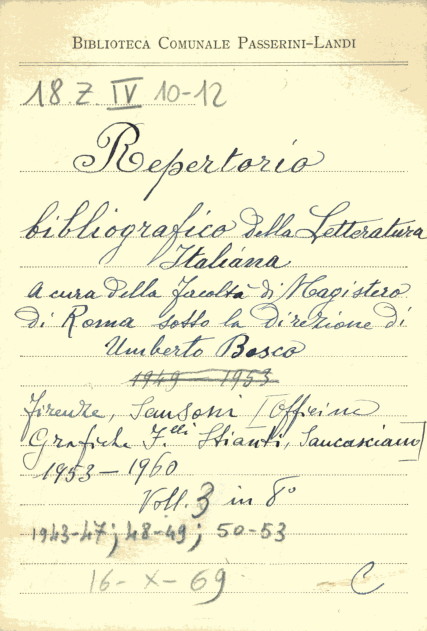 BIBLIOTECA COMUNALE PASSERINI-LANDI
18 Z IV 10-12
Repertorio
bibliografico della Letteratura
Italiana
A cura della Facoltà di Magistero
di Roma sotto la Direzione di
Umberto Bosco
1949 — 1953
Firenze, Sansoni [Officine
Grafiche F.lli Stianti, Sancasciano]
1953 — 1960
Voll. 3 in 8°
1943-47; 48-49; 50-53
16 - X - 69 C